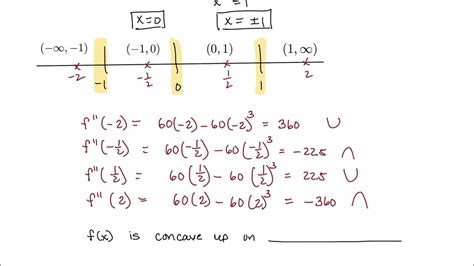 x = 1
x=0 x = ±1
(-∞, -1) (-1, 0) (0, 1) (1, ∞)
-2 -1/2 1/2 2
-1 0 1
f''(-2) = 60(-2) - 60(-2)^3 = 360 ∪
f''(-1/2) = 60(-1/2) - 60(-1/2)^3 = -22.5 ∩
f''(1/2) = 60(1/2) - 60(1/2)^3 = 22.5 ∪
f''(2) = 60(2) - 60(2)^3 = -360 ∩
f(x) is concave up on